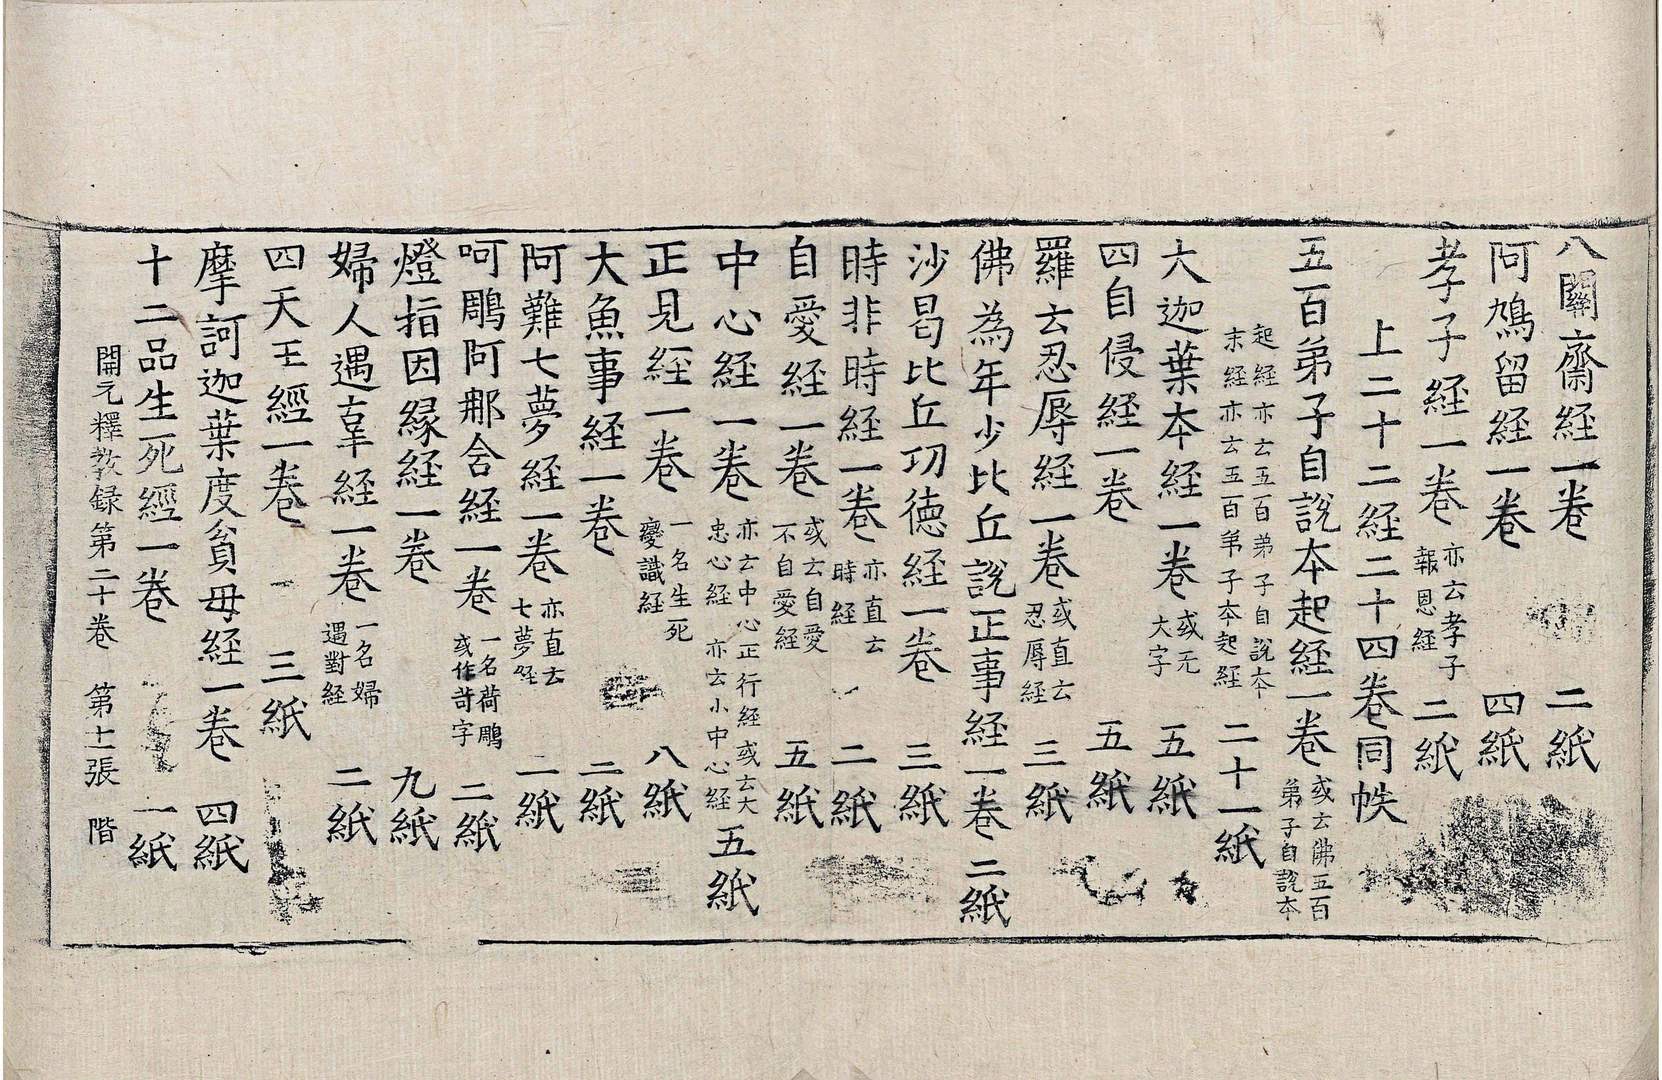 八關齋經一卷 二紙
阿鳩留經一卷 四紙
孝子經一卷 亦云孝子報恩經 二紙
上二十二経二十四卷同帙
五百弟子自說本起経一卷 或云佛五百弟子自說本
起経亦云五百弟子自說夲末経亦云五百弟子夲起経 二十一紙
大迦葉夲経一卷 或无大字 五紙
四自侵経一卷 五紙
羅云忍辱経一卷 或直云忍辱経 三紙
佛為年少比丘說正事経一卷 二紙
沙曷比丘功徳経一卷 三紙
時非時経一卷 亦直云時経 二紙
自愛経一卷 或云自愛不自愛経 五紙
中心経一卷 亦云中心正行経或云大忠心経 亦云小中心経 五紙
正見経一卷 一名生死變識経 八紙
大魚事経一卷 二紙
阿難七夢経一卷 亦直云七夢経 二紙
呵鵰阿那含経一卷 一名荷鵰或作苛字 二紙
燈指因縁経一卷 九紙
婦人遇辜経一卷 一名婦遇對経 二紙
四天王經一卷 三紙
摩訶迦葉度貧母経一卷 四紙
十二品生死經一卷 一紙
開元釋教録第二十卷 第十一張 階